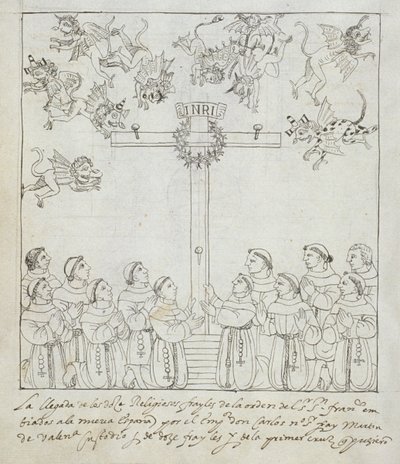 INRI
La llegada de los doze Religiosos frayles de la orden del Sr. Sn. Franco. em
biados a la nueva España por el Empor. don Carlos nro. Sr. fray Martin
de Valena. Custodio de doze frayles y de la primer cruz q pusieron